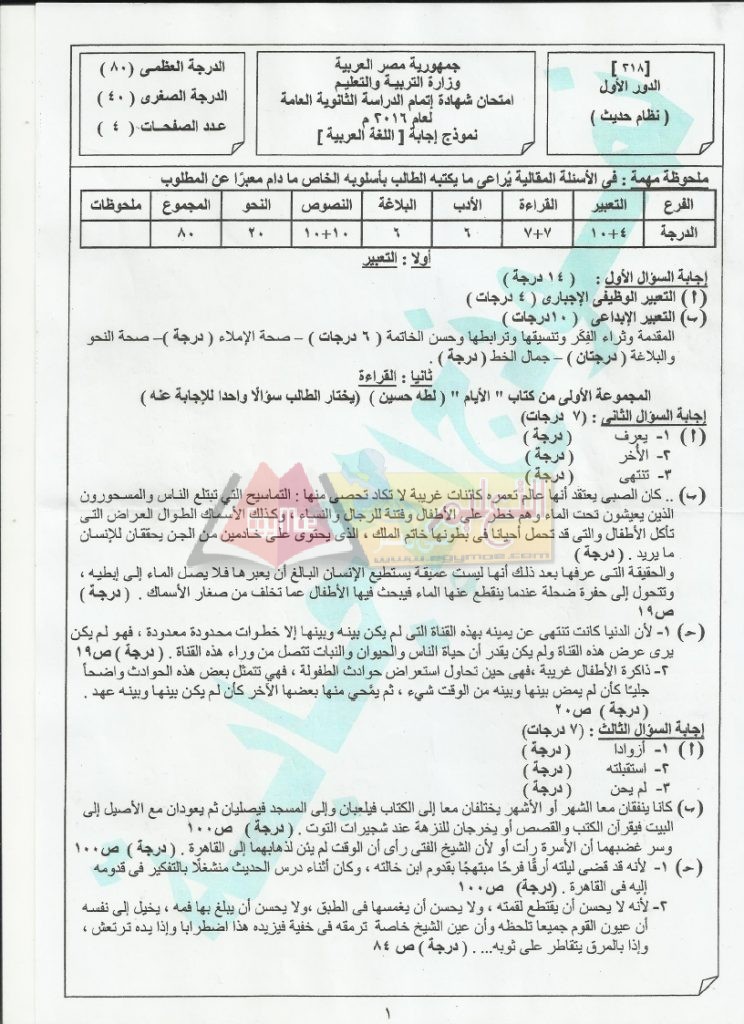 [ ٢١٨ ]
الدور الأول
( نظام حديث )
جمهورية مصر العربية
وزارة التربية والتعليم
امتحان شهادة إتمام الدراسة الثانوية العامة
لعام ٢٠١٦ م
نموذج إجابة [ اللغة العربية ]
الدرجة العظمى ( ٨٠ )
الدرجة الصغرى ( ٤٠ )
عدد الصفحات ( ٤ )
ملحوظة مهمة : في الأسئلة المقالية يُراعى ما يكتبه الطالب بأسلوبه الخاص ما دام معبرًا عن المطلوب
الفرع التعبير القراءة الأدب البلاغة النصوص النحو المجموع ملحوظات
الدرجة ٤+١٠ ٧+٧ ٦ ٦ ١٠+١٠ ٢٠ ٨٠
أولا : التعبير
إجابة السؤال الأول : ( ١٤ درجة )
( أ ) التعبير الوظيفى الإجبارى ( ٤ درجات )
(ب) التعبير الإبداعى ( ١٠درجات )
المقدمة وثراء الفِكَر وتنسيقها وترابطها وحسن الخاتمة ( ٦ درجات ) – صحة الإملاء ( درجة )– صحة النحو
والبلاغة ( درجتان ) – جمال الخط ( درجة ) .
ثانيا : القراءة
المجموعة الأولى من كتاب " الأيام " ( لطه حسين ) (يختار الطالب سؤالًا واحدا للإجابة عنه )
إجابة السؤال الثانى : ( ٧ درجات)
( أ ) ١- يعرف ( درجة )
٢- الأُخر ( درجة )
٣- تنتهى ( درجة )
(ب) .. كان الصبى يعتقد أنها عالم تعمره كائنات غريبة لا تكاد تحصي منها : التماسيح التي تبتلع الناس والمسحورون
الذين يعيشون تحت الماء وهم خطر على الأطفال وفتنة للرجال والنساء ، وكذلك الأسماك الطوال العراض التى
تأكل الأطفال والتى قد تحمل أحيانًا فى بطونها خاتم الملك ، الذى يحتوى على خادمين من الجن يحققان للإنسان
ما يريد . ( درجة )
والحقيقة التى عرفها بعد ذلك أنها ليست عميقة يستطيع الإنسان البالغ أن يعبرها فلا يصل الماء إلى إبطيه ،
وتتحول إلى حفرة ضحلة عندما ينقطع عنها الماء فيبحث فيها الأطفال عما تخلف من صغار الأسماك . ( درجة )
ص١٩
(حـ) ١- لأن الدنيا كانت تنتهى عن يمينه بهذه القناة التى لم يكن بينه وبينها إلا خطوات محدودة معدودة ، فهو لم يكن
يرى عرض هذه القناة ولم يكن يقدر أن حياة الناس والحيوان والنبات تتصل من وراء هذه القناة . ( درجة ) ص١٩
٢- ذاكرة الأطفال غريبة ،فهى حين تحاول استعراض حوادث الطفولة ، فهي تتمثل بعض هذه الحوادث واضحاً
جليًا كأن لم يمض بينها وبينه من الوقت شيء ، ثم يمَّحي منها بعضها الآخر كأن لم يكن بينها وبينه عهد .
( درجة ) ص٢٠
إجابة السؤال الثالث : ( ٧ درجات)
( أ ) ١- أزوادا ( درجة )
٢- استقبلته ( درجة )
٣- لم يحن ( درجة )
(ب) كانا ينفقان معا الشهر أو الأشهر يختلفان معا إلى الكتاب فيلعبان وإلى المسجد فيصليان ثم يعودان مع الأصيل إلى
البيت فيقرآن الكتب والقصص أو يخرجان للنزهة عند شجيرات التوت . ( درجة ) ص١٠٠
وسر غضبهما أن الأسرة رأت أو لأن الشيخ الفتى رأى أن الوقت لم يئن لذهابهما إلى القاهرة . ( درجة ) ص١٠٠
(حـ) ١- لأنه قد قضى ليلته أرقًا فرحًا مبتهجًا بقدوم ابن خالته ، وكان أثناء درس الحديث منشغلًا بالتفكير فى قدومه
إليه فى القاهرة . (درجة ) ص١٠٠
٢- لأنه لا يحسن أن يقتطع لقمته ، ولا يحسن أن يغمسها فى الطبق ،ولا يحسن أن يبلغ بها فمه ، يخيل إلى نفسه
أن عيون القوم جميعا تلحظه وأن عين الشيخ خاصة ترمقه فى خفية فيزيده هذا اضطرابا وإذا يده ترتعش ،
وإذا بالمرق يتقاطر على ثوبه... . ( درجة ) ص ٨٤
١